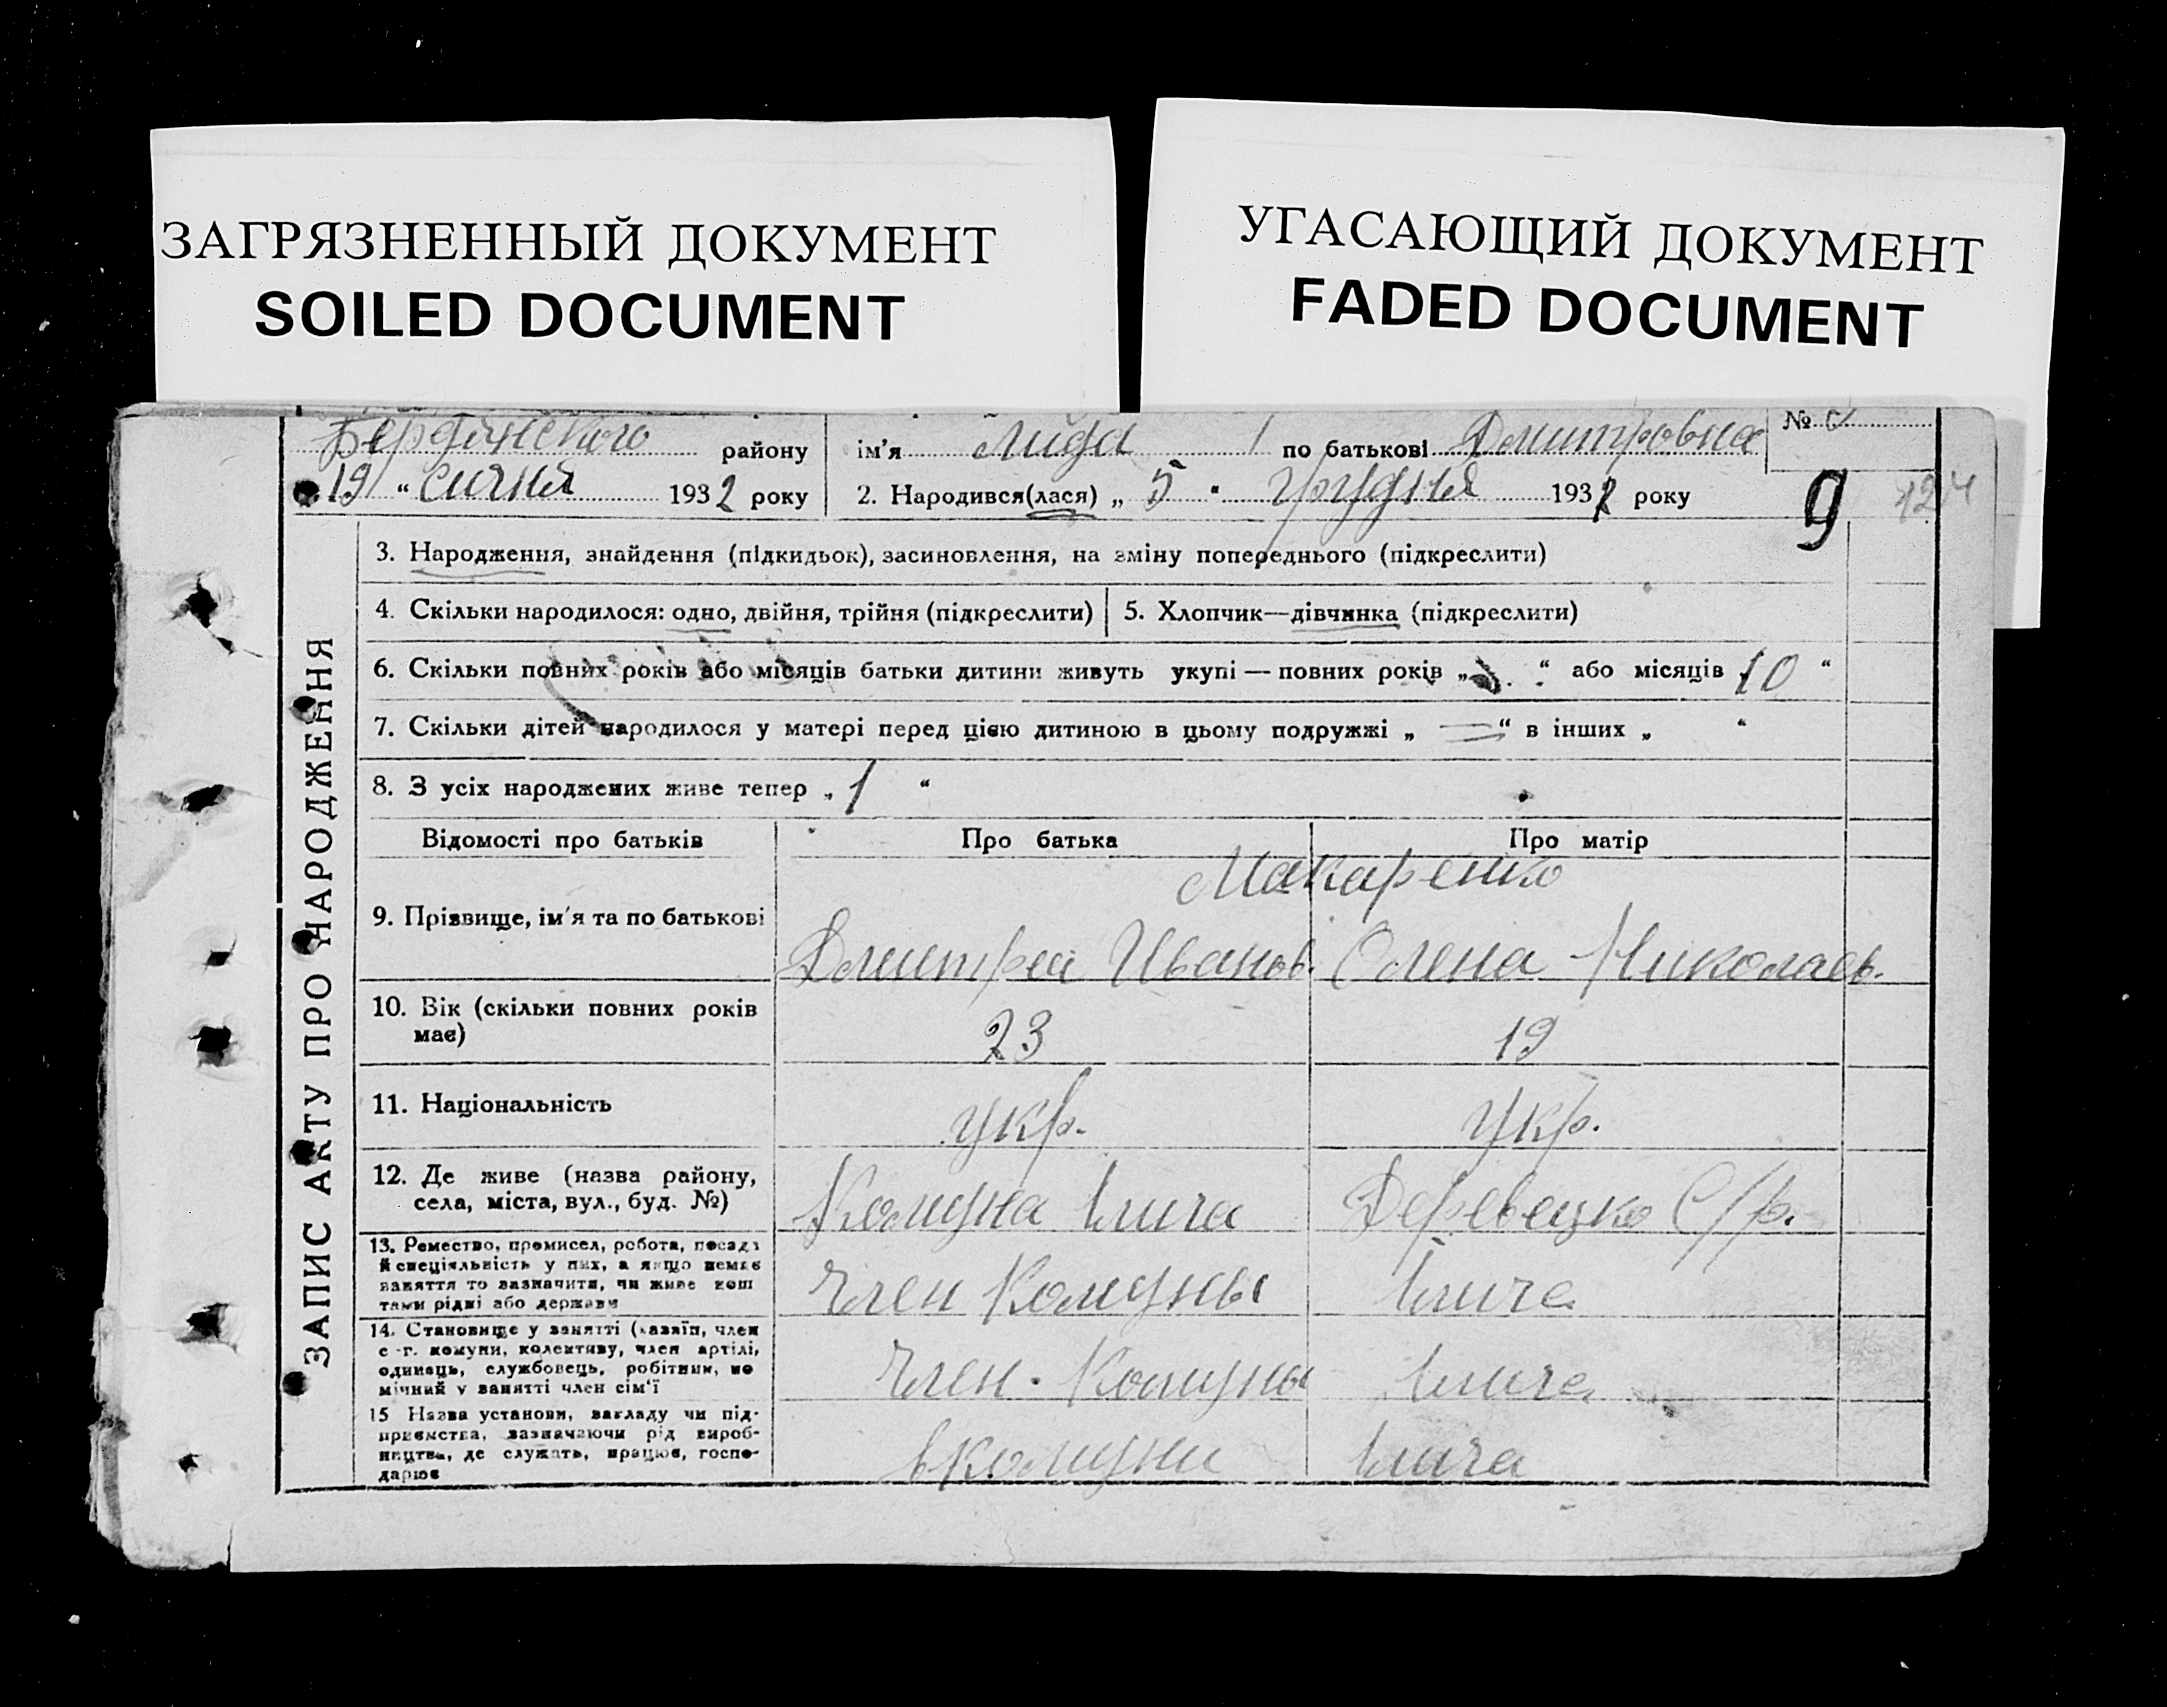 ЗАГРЯЗНЕННЫЙ ДОКУМЕНТ
SOILED DOCUMENT
УГАСАЮЩИЙ ДОКУМЕНТ
FADED DOCUMENT
Бердянского району
„19“ сичня 1932 року
ім’я Лида по батькові Дмитровна
№
2. Народився(лася) „5“ грудня 193 року
9
ЗАПИС АКТУ ПРО НАРОДЖЕННЯ
3. Народження, знайдення (підкидьок), засиновлення, на зміну попереднього (підкреслити)
4. Скільки народилося: одно, двійня, трійня (підкреслити)
5. Хлопчик—дівчинка (підкреслити)
6. Скільки повних років або місяців батьки дитини живуть укупі — повних років „ “ або місяців 10 “
7. Скільки дітей народилося у матері перед цією дитиною в цьому подружжі „ — “ в інших „ “
8. З усіх народжених живе тепер „ 1 “
Відомості про батьків Про батька Про матір
Макаренко
9. Прізвище, ім’я та по батькові Дмитрей Иванов. Олена Николаев.
10. Вік (скільки повних років має) 23 19
11. Національність укр. укр.
12. Де живе (назва району, села, міста, вул., буд. №) Комуна Ілича С/р.
13. Ремество, промисел, робота, посада
й спеціяльність у них, а якщо немає
заняття то зазначити, чи живе кош
тами рідні або держави
Член Комуны Ілича
14. Становище у занятті (хазяїн, член
с.-г. комуни, колективу, член артілі,
одинець, службовець, робітник, по
мічний у занятті член сім’ї
Член. Комуны Ілича
15 Назва установи, закладу чи під-
приємства, зазначаючи рід вироб-
ництва, де служать, працює, госпо-
дарює
в комуни Ілича